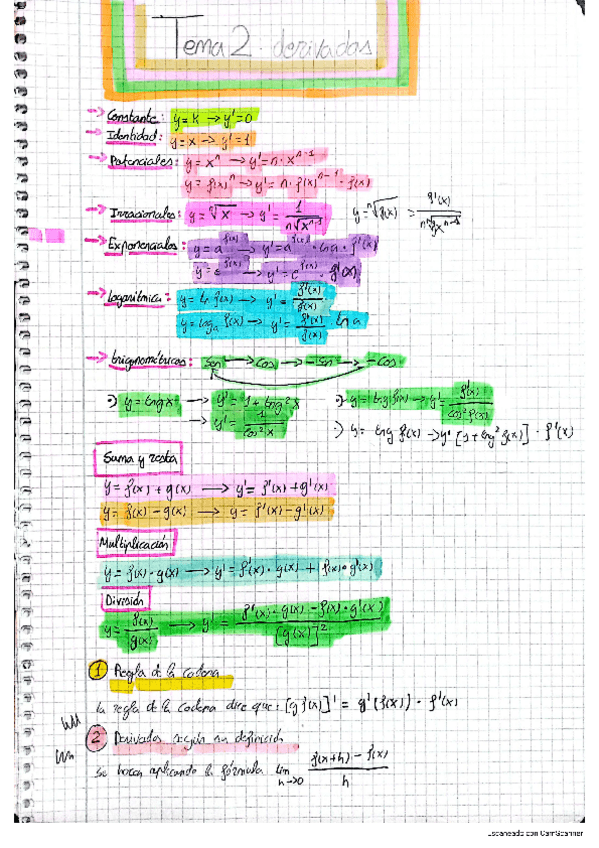 Tema 2. derivadas
→ Constante: y = K → y' = 0
→ Identidad: y = x → y' = 1
→ Potenciales: y = x^n → y' = n · x^(n-1)
y = f(x)^n → y' = n · f(x)^(n-1) · f(x)
→ Irracionales: y = ⁿ√x → y' = 1 / n ⁿ√x^(n-1)    y = ⁿ√f(x) → = f'(x) / n ⁿ√fx^(n-1)
→ Exponenciales: y = a^f(x) → y' = a^f(x) · ln a · f'(x)
y = e^f(x) → y' = e^f(x) · f'(x)
→ logaritmica: y = ln f(x) → y' = f'(x) / f(x)
y = log_a f(x) → y' = f'(x) / f(x) ln a
→ trigonométricas: Sen → Cos → -Sen → -Cos
·) y = tng x → y' = 1 + tng² x    ·) y = tng f(x) → y' = f'(x) / cos² f(x)
→ y' = 1 / cos² x    ·) y = tng f(x) → y' [1 + tng² f(x)] · f'(x)
Suma y resta
y = f(x) + g(x) → y' = f'(x) + g'(x)
y = f(x) - g(x) → y = f'(x) - g'(x)
Multiplicación
y = f(x) · g(x) → y' = f'(x) · g(x) + f(x) · g'(x)
División
y = f(x) / g(x) → y' = f'(x) · g(x) - f(x) · g'(x) / [g(x)]²
1 Regla de la cadena
la regla de la cadena dice que: [g f(x)]' = g'(f(x)) · f'(x)
2 Derivadas según su definición
Se hacen aplicando la fórmula lim h→0 f(x+h) - f(x) / h
Escaneado con CamScanner